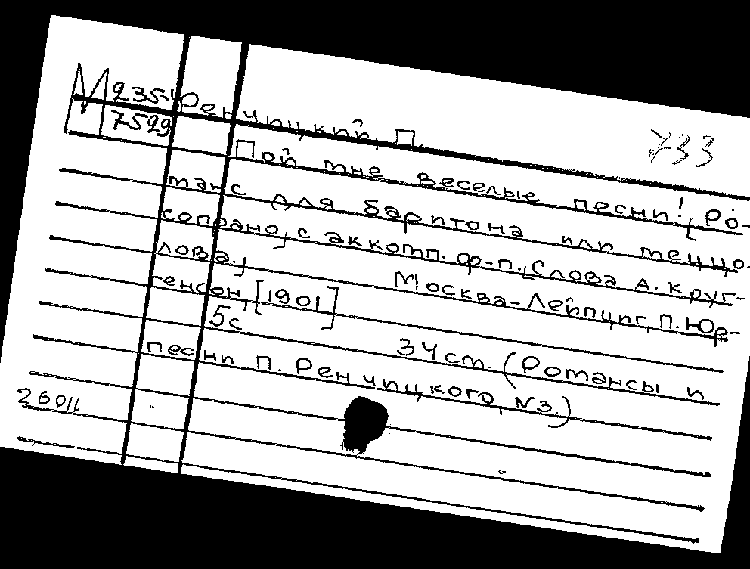 М 235-1 Ренчицкий, П. 733
7529
Пой мне веселые песни!, Ро-
манс для баритона или меццо-
сопрано, с аккомп. ф-п., Слова А. Круг-
лова., Москва-Лейпциг, П. Юр-
генсен, [1901]
5с 34 см. (Романсы и
песни П. Ренчицкого, №3.)
26011